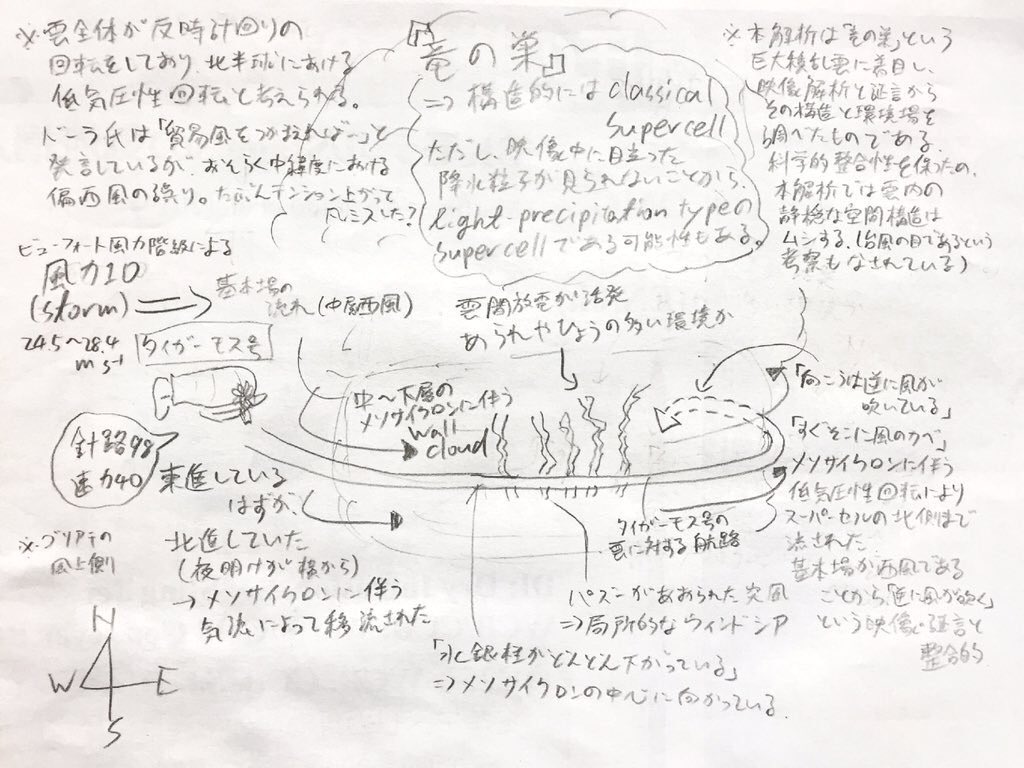 ※雲全体が反時計回りの
回転をしており、北半球における
低気圧性回転と考えられる。
ドーラ氏は「貿易風をつかまえれば…」と
発言しているが、おそらく中緯度における
偏西風の誤り。たぶんテンション上がって
凡ミスした?
『竜の巣』
⇒構造的にはclassical
supercell
ただし、映像中に目立った
降水粒子が見られないことから、
light-precipitation typeの
supercellである可能性もある。
※本解析は「竜の巣」という
巨大積乱雲に着目し、
映像解析と証言から
その構造と環境場を
調べたものである。
科学的整合性を保つため、
本解析では雲内の
静穏な空間構造は
ムシする。(台風の目であるという
考察もなされている)
ビューフォート風力階級による
風力10
(storm)
24.5~28.4
m s-1
基本場の
流れ(中層西風)
タイガーモス号
針路98
速力40
東進している
はずが、
北進していた
(夜明けが横から)
→メソサイクロンに伴う
気流によって移流された
雲間放電が活発
あられやひょうの多い環境か
中~下層の
メソサイクロンに伴う
wall
cloud
「向こうは逆に風が
吹いている」
「すぐそこに風のカベ」
メソサイクロンに伴う
低気圧性回転により
スーパーセルの北側まで
流された
基本場が西風である
ことから「逆に風が吹く」
という映像・証言と
整合的
タイガーモス号の
雲に対する航路
パズーがあおられた突風
⇒局所的なウィンドシア
「水銀柱がどんどん下がっている」
⇒メソサイクロンの中心に向かっている。
※
風上側
N
W E
S